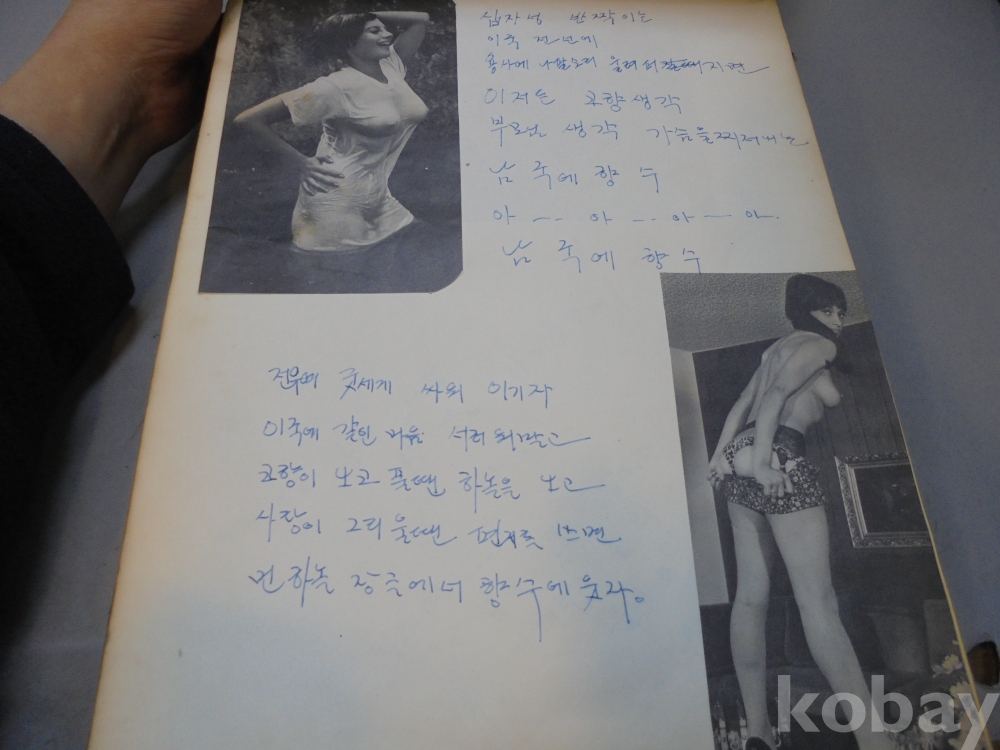 십자성 반짝이는
이국 전선에
용사에 나팔소리 울려 퍼질때지면
이저든 고향생각
부모님 생각 가슴을 찌저내는
남국에 향수
아 -- 아 -- 아 -- 아
남국에 향수
전우여 굿세게 싸워 이기자
이국에 갈린 마음 서러워말고
고향이 보고플땐 하늘을 보고
사랑이 그리울땐 편지를 쓰면
먼하늘 정글에너 향수에 웃자。
kobay